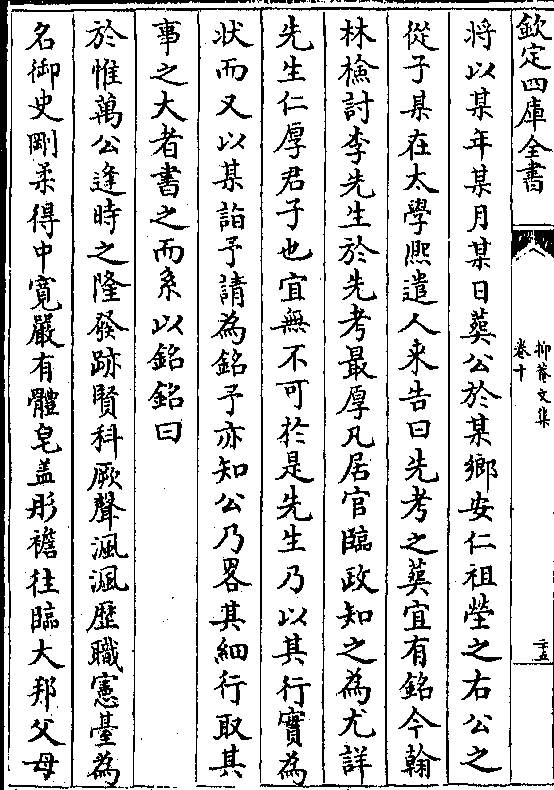 欽定四庫全書
抑菴文集
卷十
二五
將以某年某月某日葬公於某鄉安仁祖塋之右公之
從子某在太學熈遣人来告曰先考之葬宜有銘今翰
林檢討李先生於先考最厚凡居官臨政知之為尤詳
先生仁厚君子也宜無不可於是先生乃以其行實為
状而又以某詣予請為銘予亦知公乃畧其細行取其
事之大者書之而系以銘銘曰
於惟萬公逢時之隆發跡賢科厥聲渢渢歴職憲臺為
名御史剛柔得中寛嚴有體皂盖彤襜往臨大邦父母